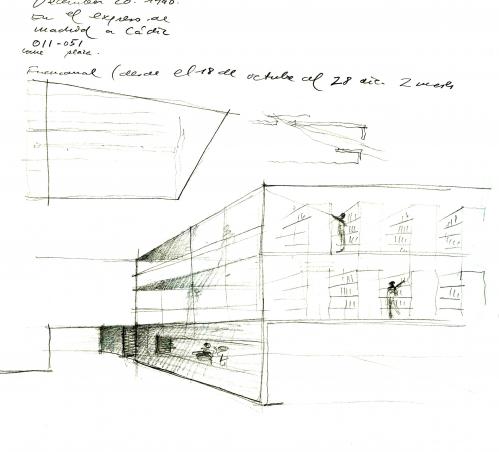 December 20. 1990.
En el expreso de
Madrid a Cádiz
011-051
Funcional (desde el 18 de octubre al 28 dic. 2 meses